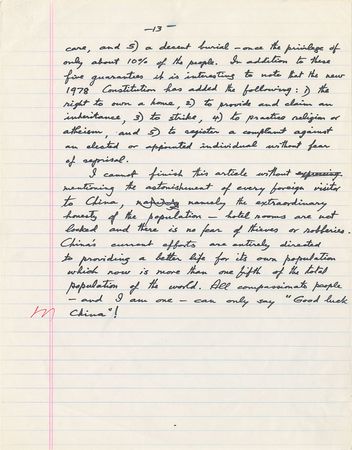 -13-
care, and 5) a decent burial - once the privilege of
only about 10% of the people. In addition to these
five guaranties it is interesting to note that the new
1978 Constitution has added the following: 1) the
right to own a home, 2) to provide and claim an
inheritance, 3) to strike, 4) to practice religion or
atheism, and 5) to register a complaint against
an elected or appointed individual without fear
of reprisal.
I cannot finish this article without
mentioning the astonishment of every foreign visitor
to China, namely the extraordinary
honesty of the population - hotel rooms are not
locked and there is no fear of thieves or robberies.
China's current efforts are entirely directed
to providing a better life for its own population
which now is more than one fifth of the total
population of the world. All compassionate people
- and I am one - can only say "Good luck
China"!